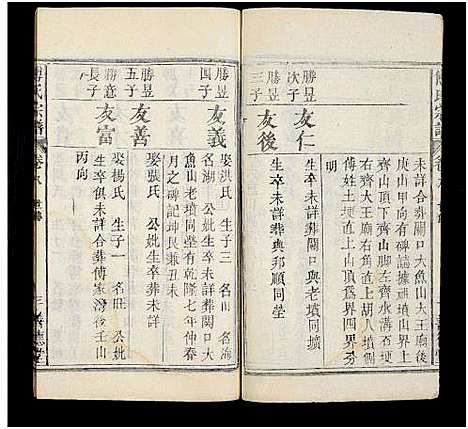 傅氏宗譜
未詳合葬關口大魚山大王廟後
庚山甲向有碑誌據祖墳山界四
齊山頂下齊山脚左齊水溝石埂
右齊大王廟右角直上胡八墳側
傅姓土埂直頂爲界四界旁
勝昱
次子
友仁
生卒未詳葬關口與老墳同壙
勝昱
三子
友後
生卒未詳葬與邦順同塋
勝昱
四子
友義
娶洪氏 生子三 名山 名海
名湖 公妣生卒未詳葬關口大
魚山老墳塋同有乾隆七年仲春
月之碑記坤艮兼丑未
勝昱
五子
友善
娶張氏 公妣生卒葬未詳
勝意
長子
友富
娶楊氏 生子一 名旺 公妣
生卒俱未詳合葬傅家灣後壬山
丙向
傅氏宗譜
卷八
三善德堂